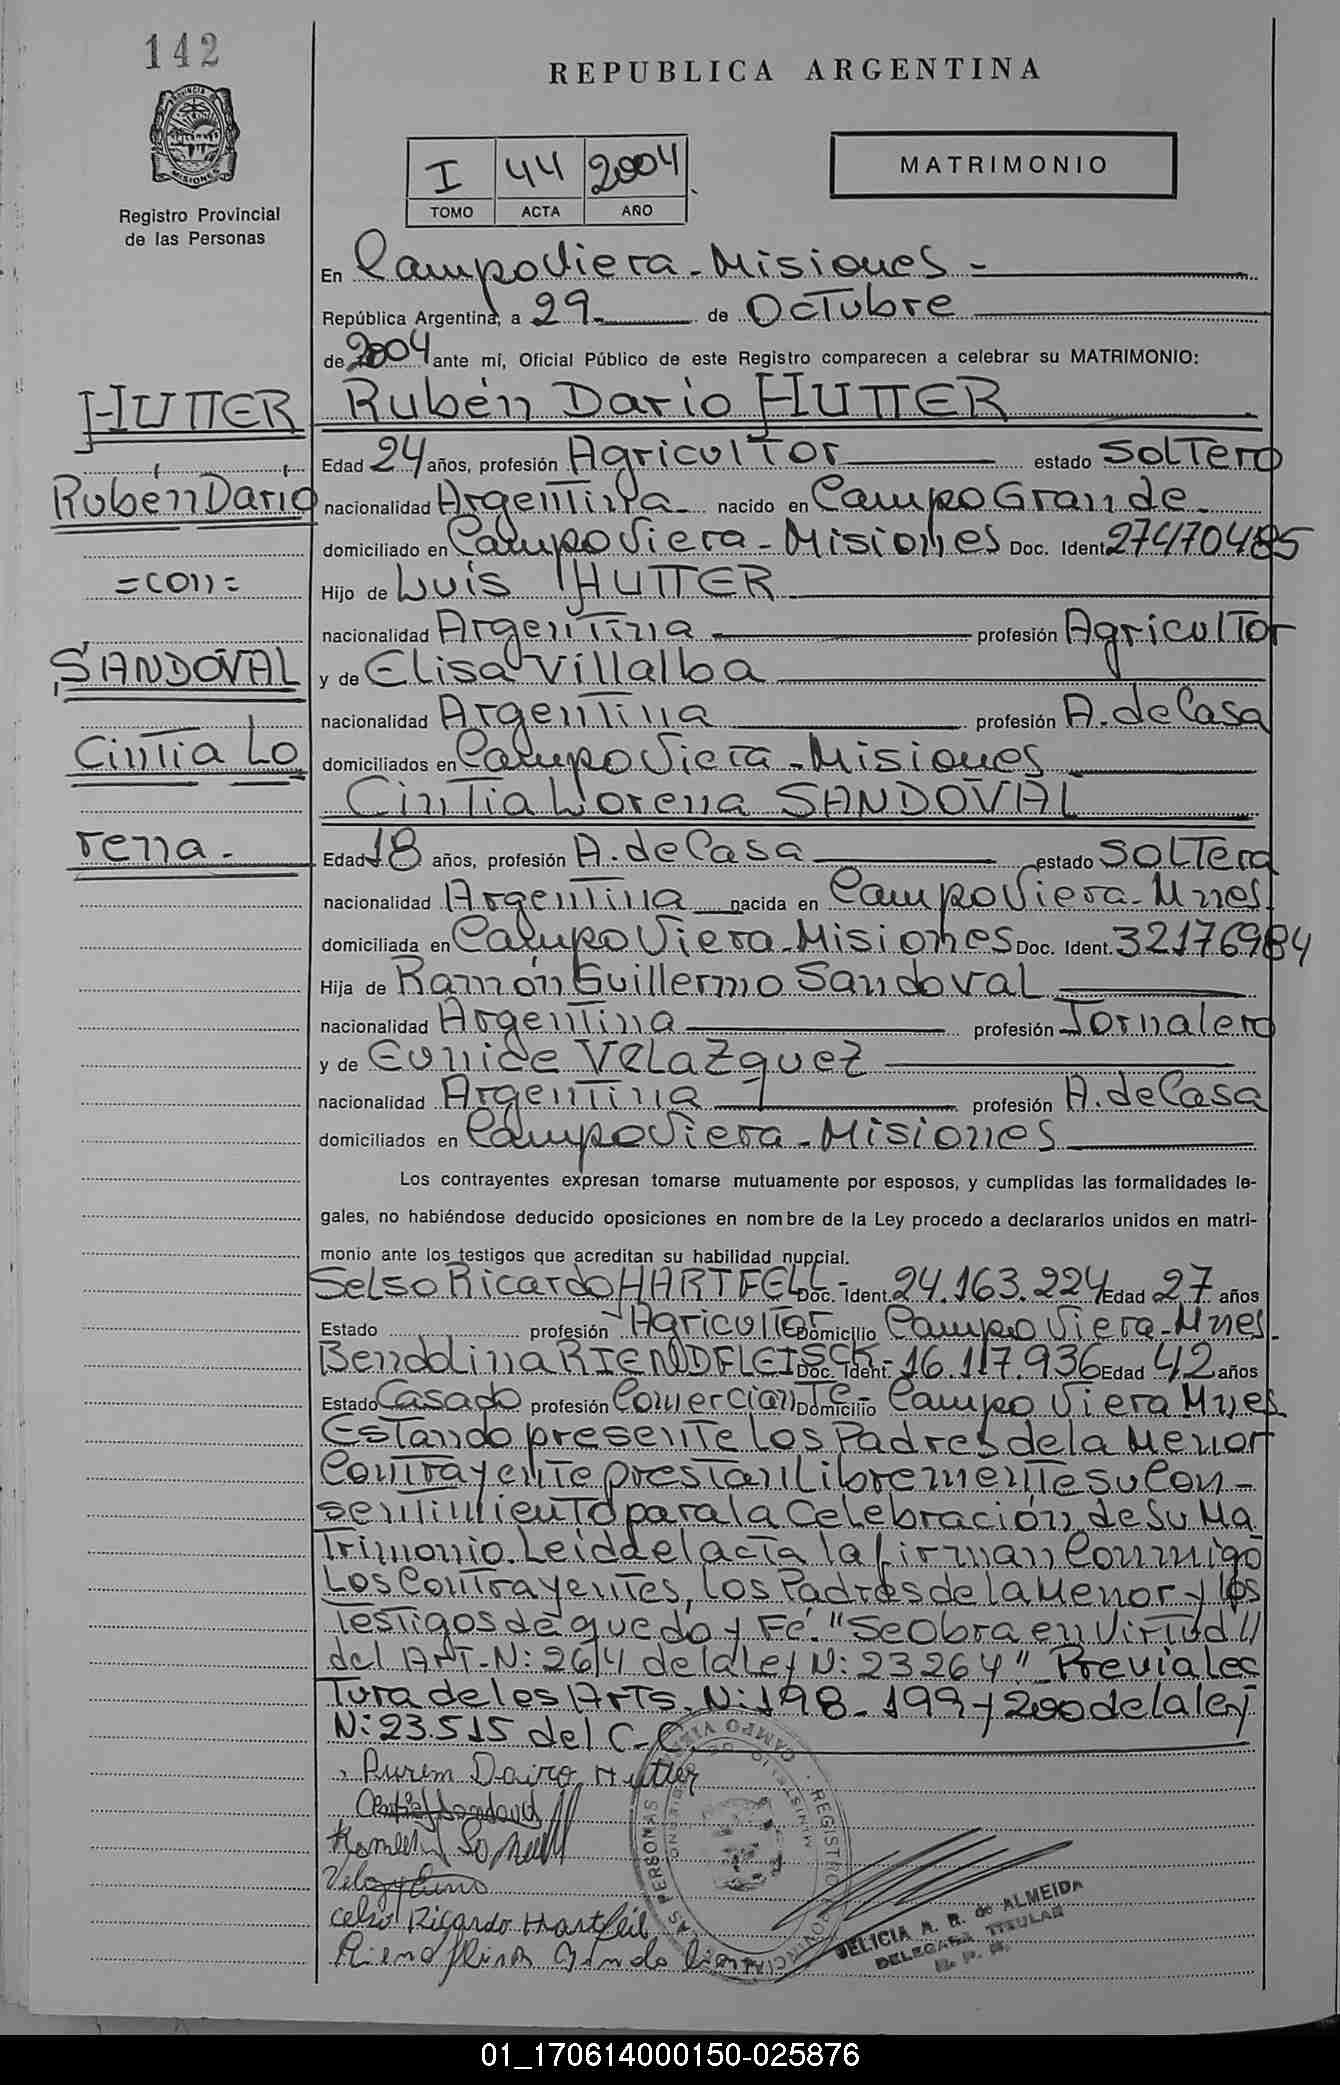 142
REPUBLICA ARGENTINA
PROVINCIA DE MISIONES
I 44 2004
TOMO ACTA AÑO
MATRIMONIO
Registro Provincial
de las Personas
En Campo Viera - Misiones =
República Argentina, a 29 de Octubre
de 2004 ante mí, Oficial Público de este Registro comparecen a celebrar su MATRIMONIO:
HUTTER
Rubén Darío
=con=
SANDOVAL
Cintia Lo
rena -
Rubén Darío HUTTER
Edad 24 años, profesión Agricultor estado Soltero
nacionalidad Argentina nacido en Campo Grande
domiciliado en Campo Viera - Misiones Doc. Ident. 27470485
Hijo de Luis HUTTER
nacionalidad Argentina profesión Agricultor
y de Elisa Villalba
nacionalidad Argentina profesión A. de Casa
domiciliados en Campo Viera - Misiones
Cintia Lorena SANDOVAL
Edad 18 años, profesión A. de Casa estado Soltera
nacionalidad Argentina nacida en Campo Viera - Mnes
domiciliada en Campo Viera - Misiones Doc. Ident. 32176984
Hija de Ramón Guillermo Sandoval
nacionalidad Argentina profesión Jornalero
y de Eunide Velazquez
nacionalidad Argentina profesión A. de Casa
domiciliados en Campo Viera - Misiones
Los contrayentes expresan tomarse mutuamente por esposos, y cumplidas las formalidades le-
gales, no habiéndose deducido oposiciones en nombre de la Ley procedo a declararlos unidos en matri-
monio ante los testigos que acreditan su habilidad nupcial.
Selso Ricardo HARTFELL - Doc. Ident. 24.163.224 Edad 27 años
Estado profesión Agricultor Domicilio Campo Viera - Mnes.
Benddina RIENDFLEISCK - Doc. Ident. 16.117.936 Edad 42 años
Estado Casado profesión Comerciante - Domicilio Campo Viera Mnes
Estando presente los Padres de la Menor
Contrayente prestan Libremente su Con-
sentimiento para la Celebración de Su Ma
trimonio. Leida el acta la firman Conmigo
Los Contrayentes, los Padres de la Menor y los
Testigos de que doy Fé. "Se Obra en Virtud //
del Art. N: 264 de la Ley N: 23264" Previa lec
tura de los Arts. N: 198 - 199 y 200 de la ley
N: 23.515 del C.C.
Rurem Dairo Hutter
Cintia Sandoval
Celso Ricardo Hartfeil
CAMPO VIERA
REGISTRO PROVINCIAL DE LAS PERSONAS
DELICIA A. R. de ALMEIDA
DELEGADA TITULAR
R. P. P.
01_170614000150-025876